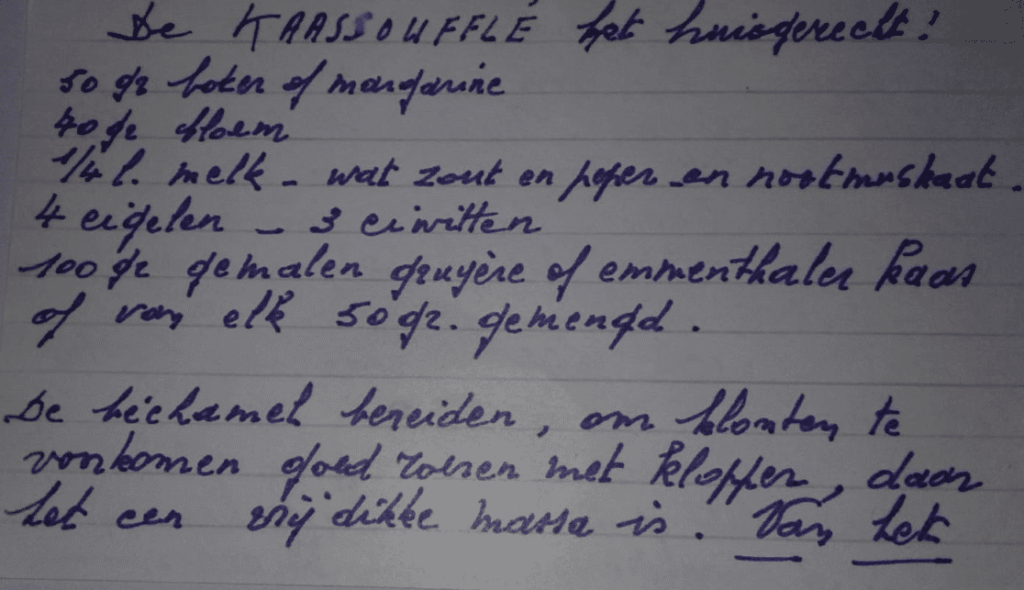 De KAASSOUFFLÉ het huisgerecht!
50 gr boter of margarine
40 gr bloem
1/4 l. melk - wat zout en peper en nootmuskaat.
4 eigelen - 3 eiwitten
100 gr gemalen gruyère of emmenthaler kaas
of van elk 50 gr. gemengd.
De béchamel bereiden, om klonten te
voorkomen goed roeren met klopper, daar
het een vrij dikke massa is. Van het